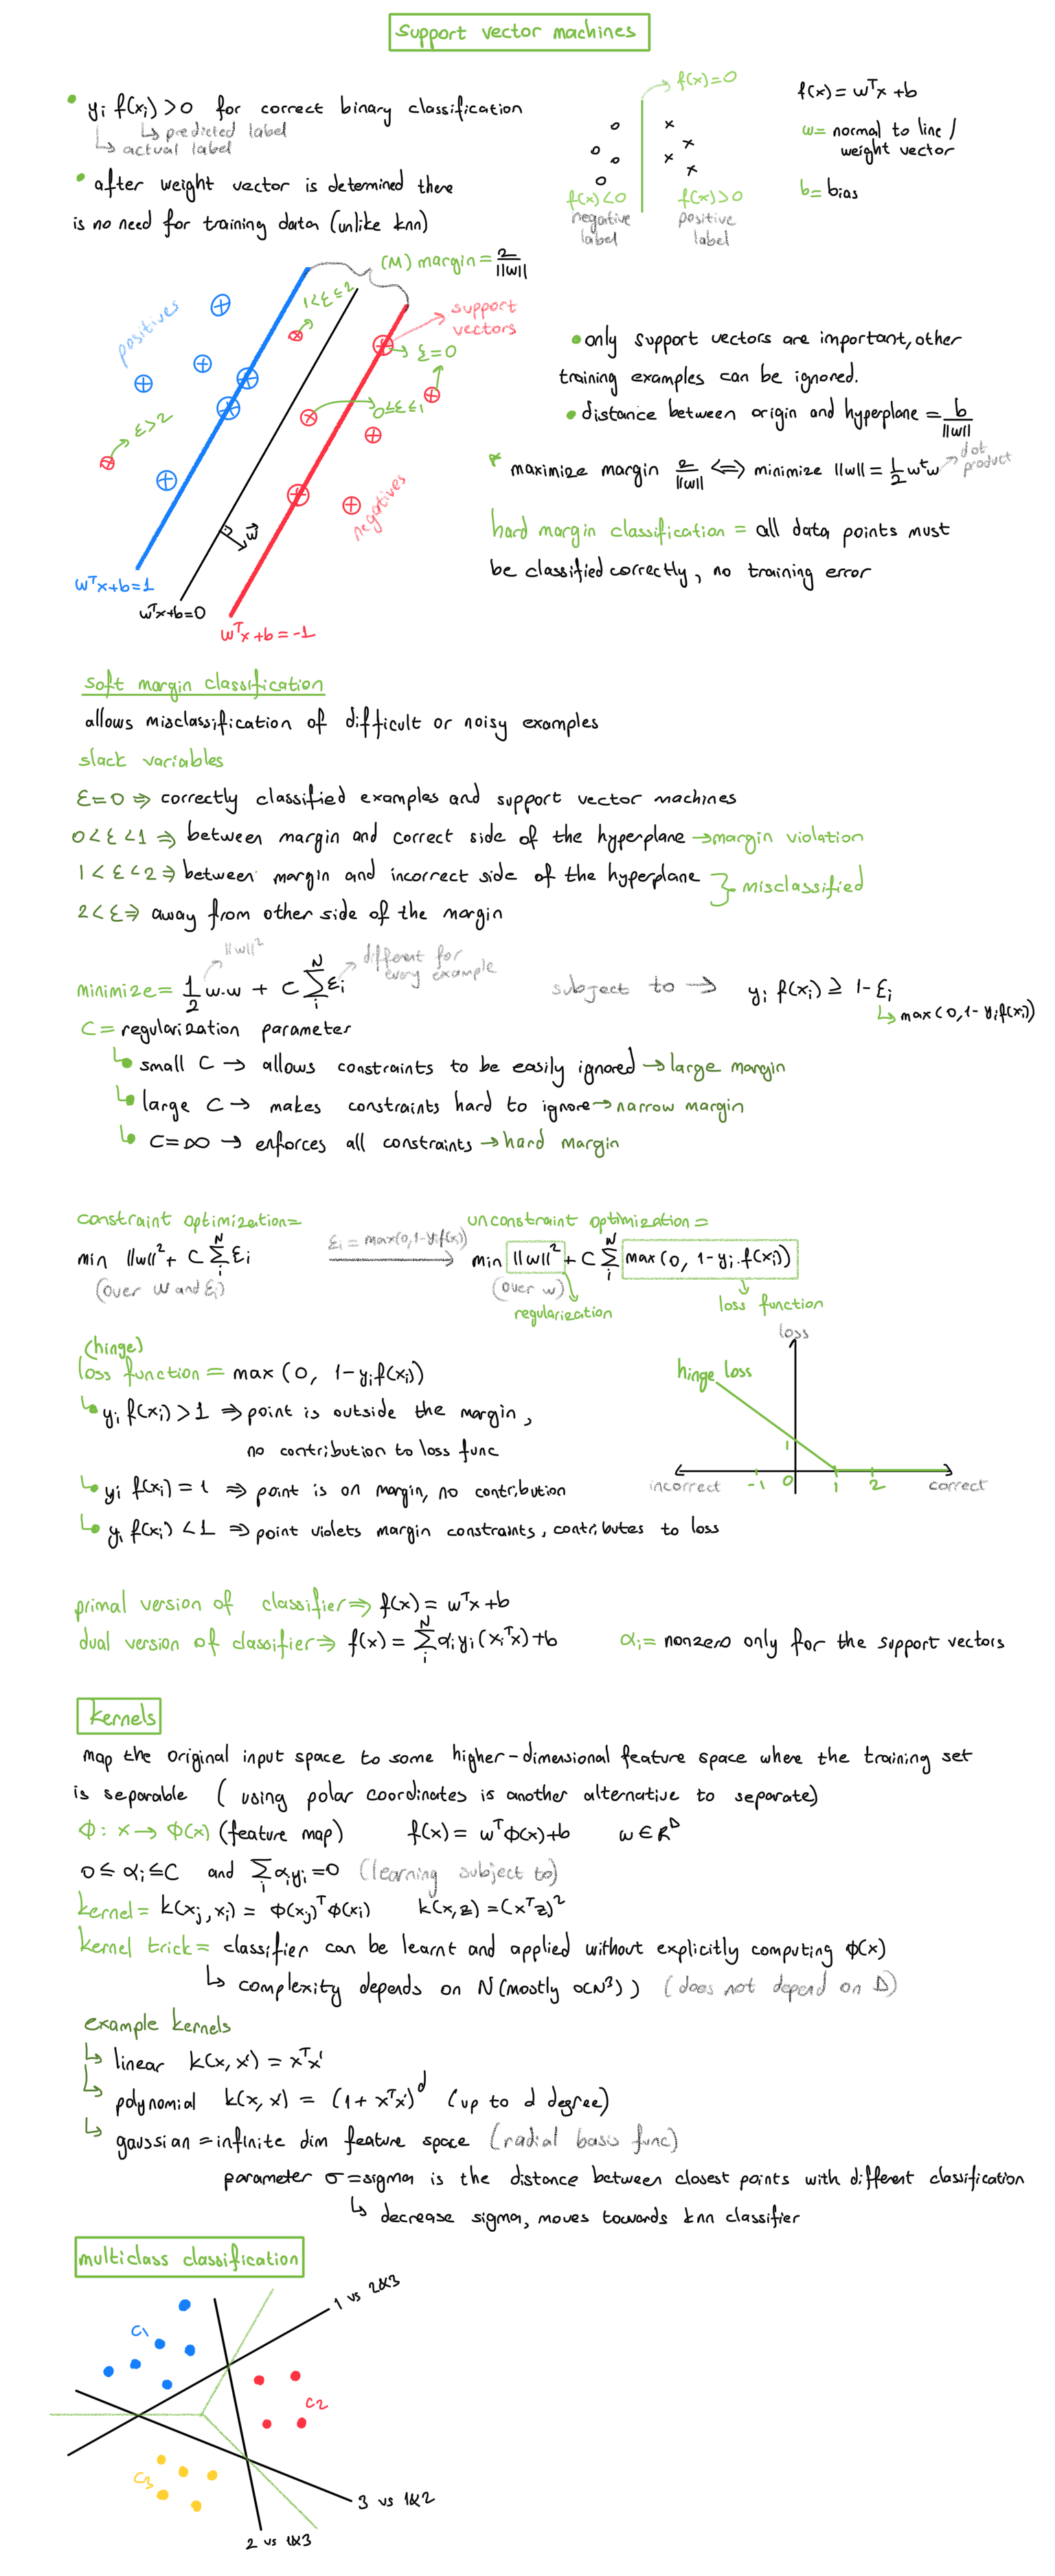 Support vector machines
• yi f(xi) >0 for correct binary classification
↳ predicted label
↳ actual label
• after weight vector is determined there
is no need for training data (unlike knn)
f(x)=0
f(x)<0
negative
label
f(x)>0
positive
label
f(x)= wᵀx +b
w= normal to line /
weight vector
b= bias
(M) margin = 2/||w||
positives
1<ξ≤2
support
vectors
ξ=0
0≤ξ≤1
ξ>2
negatives
w⃗
wᵀx+b=1
wᵀx+b=0
wᵀx+b=-1
• only support vectors are important, other
training examples can be ignored.
• distance between origin and hyperplane = b/||w||
* maximize margin 2/||w|| <=> minimize ||w|| = 1/2 wᵗw → dot product
hard margin classification = all data points must
be classified correctly, no training error
soft margin classification
allows misclassification of difficult or noisy examples
slack variables
ξ=0 ⇒ correctly classified examples and support vector machines
0<ξ<1 ⇒ between margin and correct side of the hyperplane → margin violation
1<ξ<2 ⇒ between margin and incorrect side of the hyperplane
2<ξ ⇒ away from other side of the margin
} misclassified
||w||²
different for
every example
minimize = 1/2 w.w + C Σᵢᴺ ξi subject to → yi f(xi) ≥ 1-ξi
↳ max(0, 1-yif(xi))
C = regularization parameter
↳ small C → allows constraints to be easily ignored → large margin
↳ large C → makes constraints hard to ignore → narrow margin
↳ C=∞ → enforces all constraints → hard margin
constraint optimization=
min ||w||² + C Σᵢᴺ ξi
(over w and ξi)
ξi = max(0,1-yif(xi))
unconstraint optimization =
min ||w||² + C Σᵢᴺ max(0, 1-yi.f(xi))
(over w)
regularization
loss function
(hinge)
loss function = max (0, 1-yif(xi))
↳ yi f(xi) >1 ⇒ point is outside the margin,
no contribution to loss func
↳ yi f(xi) = 1 ⇒ point is on margin, no contribution
↳ yi f(xi) <1 ⇒ point violets margin constraints, contributes to loss
loss
hinge loss
1
incorrect -1 0 1 2 correct
primal version of classifier ⇒ f(x) = wᵀx+b
dual version of classifier ⇒ f(x) = Σᵢᴺ αi yi (xiᵀx)+b αi = nonzero only for the support vectors
kernels
map the original input space to some higher-dimensional feature space where the training set
is separable (using polar coordinates is another alternative to separate)
Φ: x → Φ(x) (feature map) f(x) = wᵀΦ(x)+b w∈Rᴰ
0 ≤ αi ≤C and Σᵢ αiyi=0 (learning subject to)
kernel = k(xj,xi) = Φ(xj)ᵀΦ(xi) k(x,z) =(xᵀz)²
kernel trick = classifier can be learnt and applied without explicitly computing Φ(x)
↳ complexity depends on N (mostly o(N³)) (does not depend on D)
example kernels
↳ linear k(x,x') = xᵀx'
↳ polynomial k(x,x') = (1+ xᵀx')ᵈ (up to d degree)
↳ gaussian = infinite dim feature space (radial basis func)
parameter σ=sigma is the distance between closest points with different classification
↳ decrease sigma, moves towards knn classifier
multiclass classification
1 vs 2&3
C1
C2
C3
3 vs 1&2
2 vs 1&3